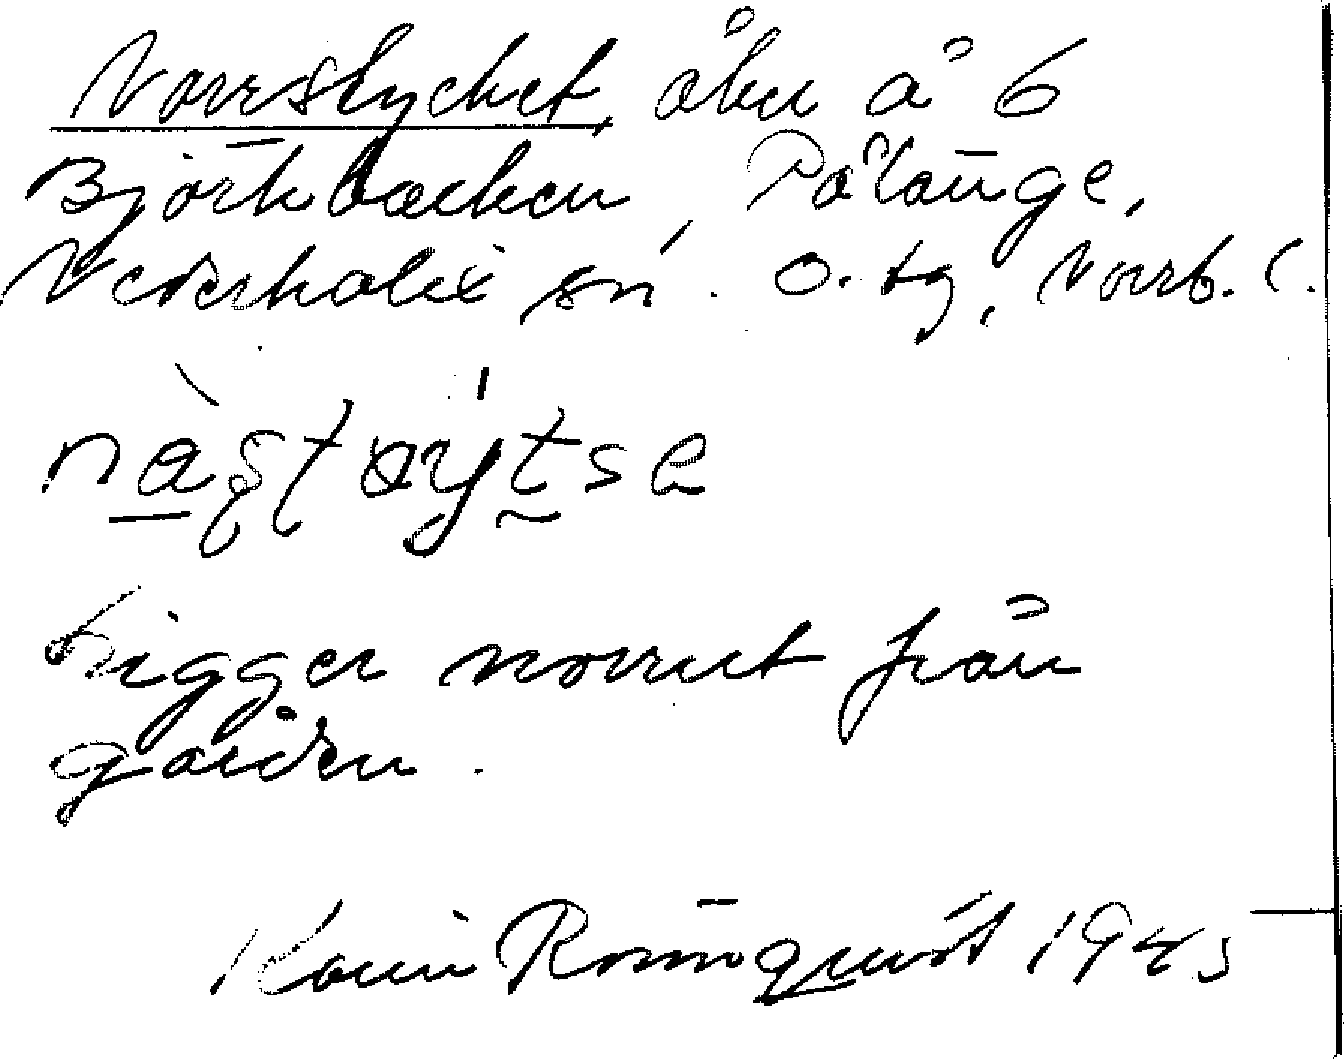 Norrstycket, åker å 6
Björkbacken, Pålänge,
Nederkalix sn. o. tg, Norrb. l.
ligger norrut från
gården.
Karin Rönnquist 1945